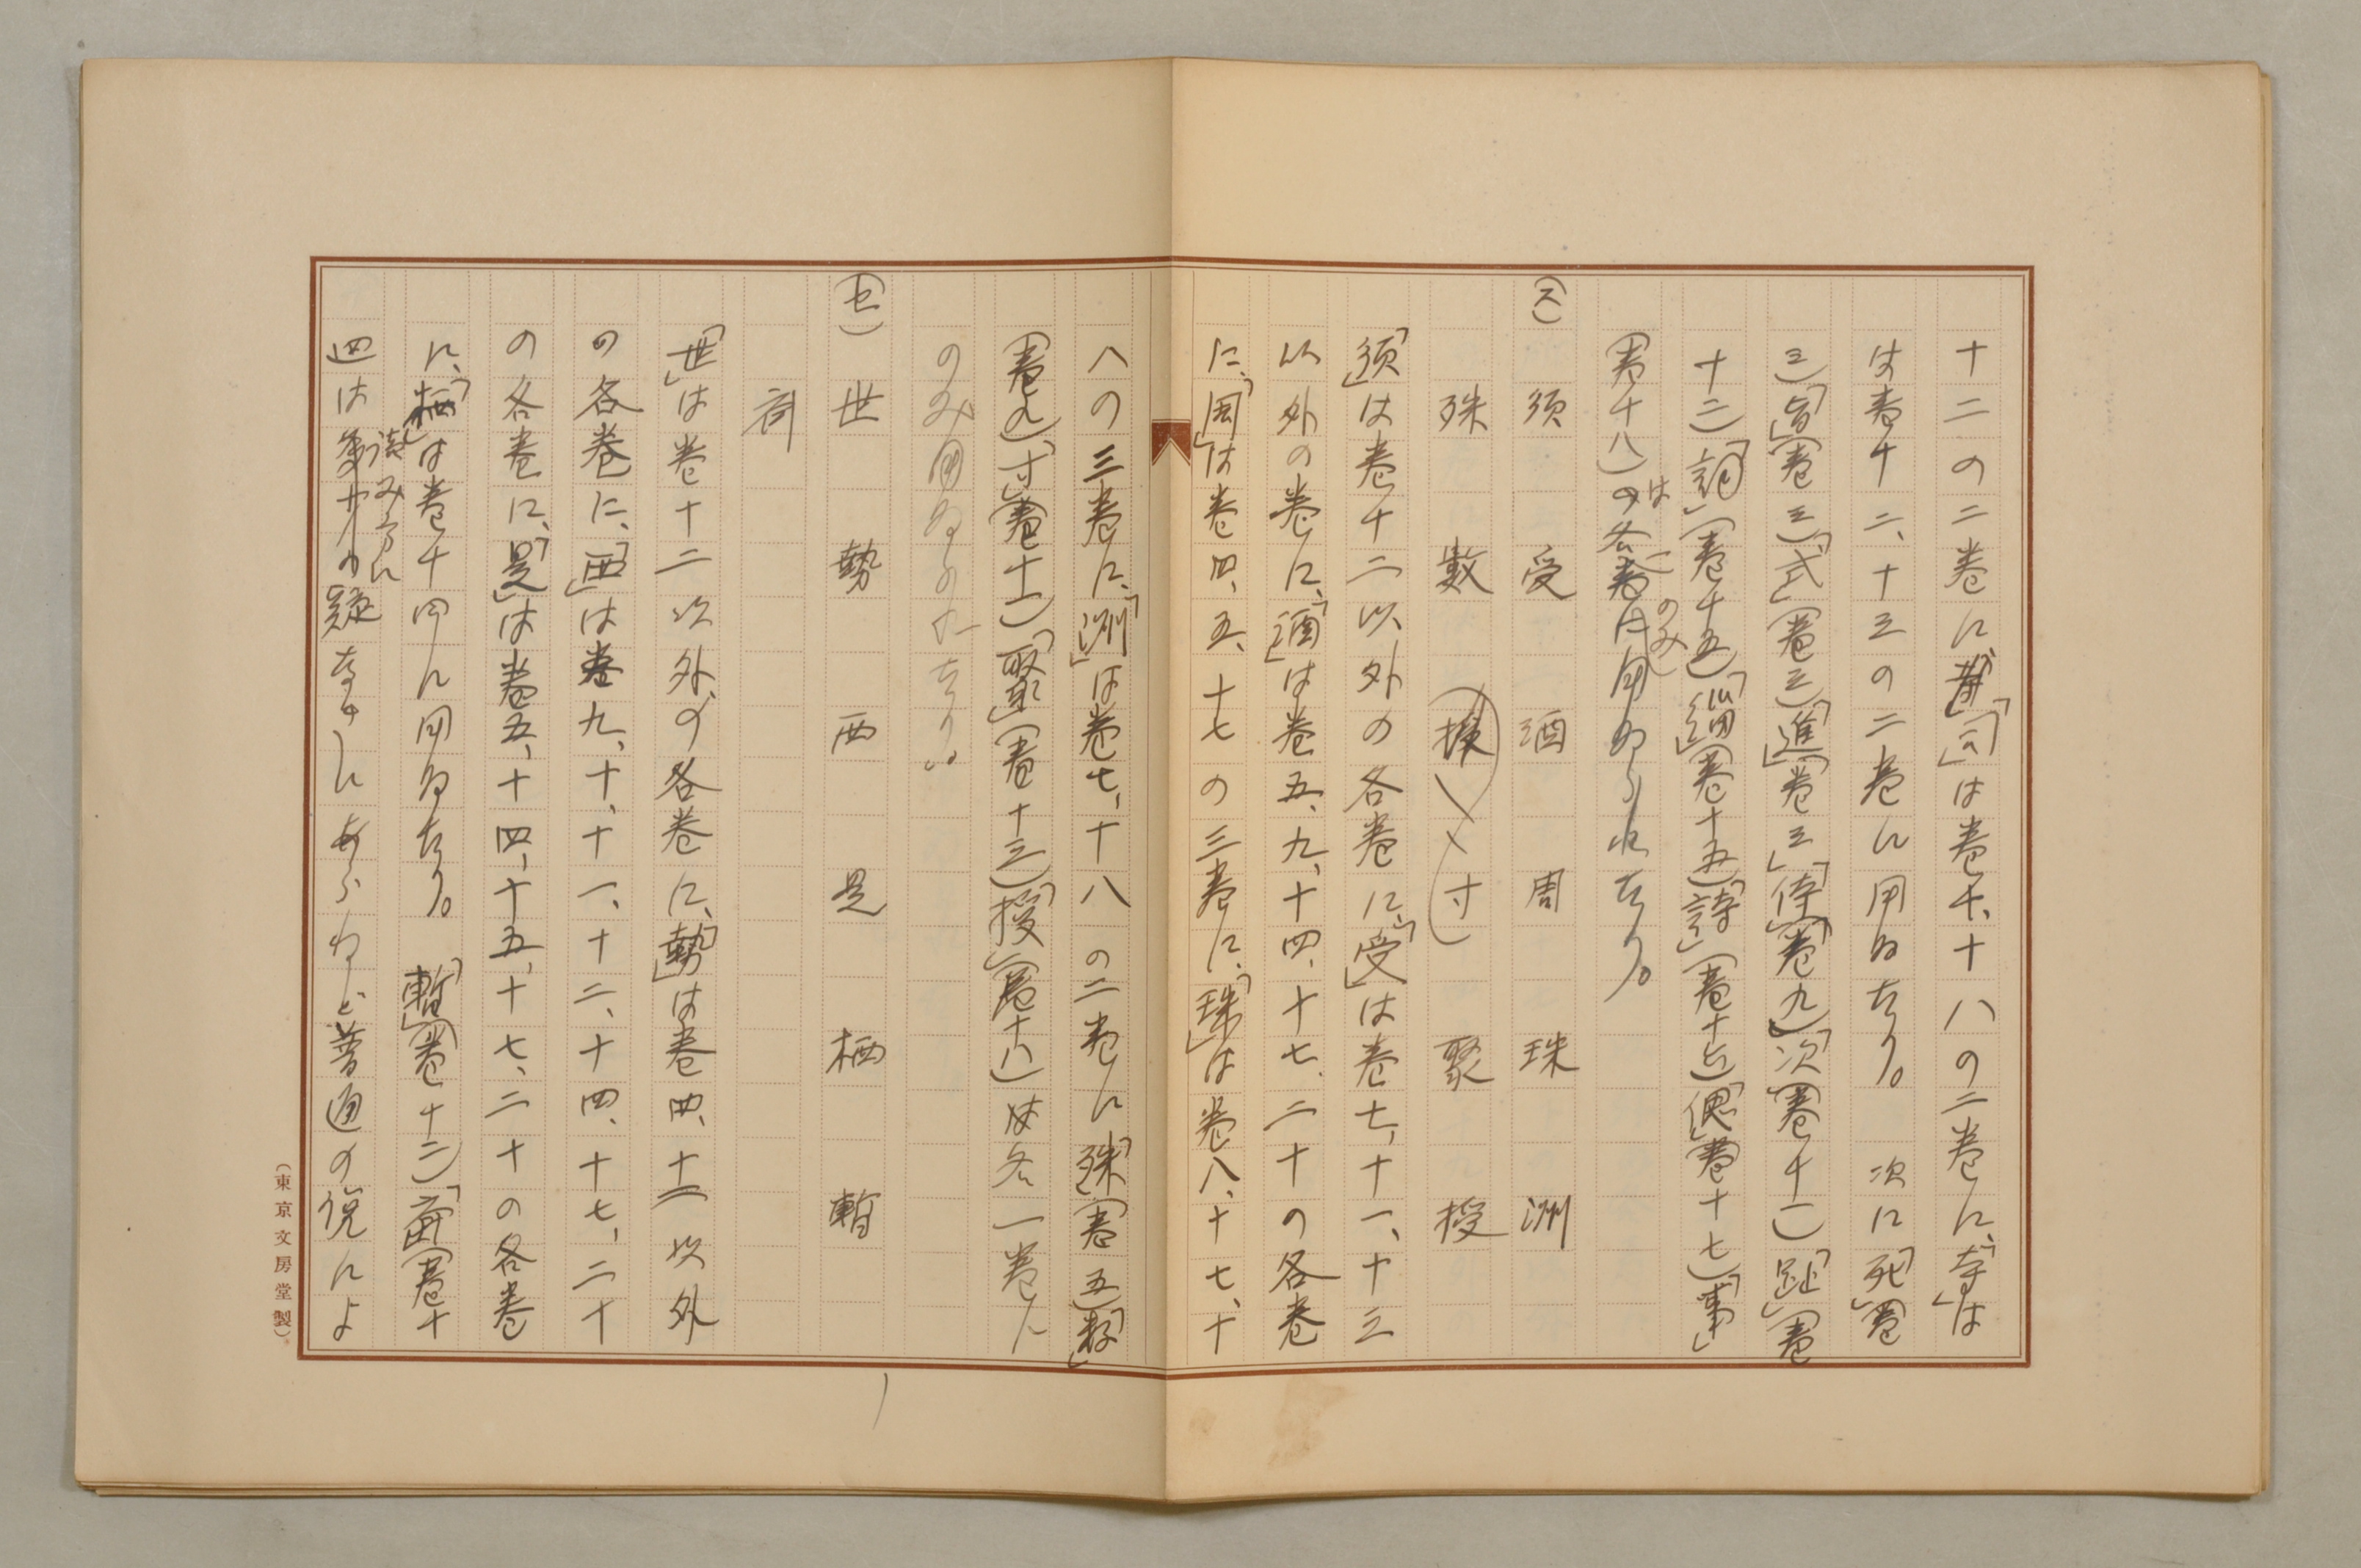 十二の二巻に、「司」は巻十、十八の二巻に、「寺」は
は巻十二、十三の二巻に用ゐたり。 次に「死」(巻
三)「旨」(巻三)、「式」(巻三)「進」(巻三)「侍」(巻九)「次」(巻十一)「趾」(巻
十二)「詞」(巻十五)「緇」(巻十五)「詩」(巻十七)「偲」(巻十七)「事」
(巻十八)は一巻にのみ用ゐられたり。
(ス) 須 受 酒 周 珠 洲
殊 數 寸 聚 授
「須」は巻十二以外の各巻に、「受」は巻七、十一、十三
以外の巻に、「酒」は巻五、九、十四、十七、二十の各巻
に、「周」は巻四、五、十七の三巻に、「珠」は巻八、十七、十
八の三巻に、「洲」は巻七、十八の二巻に「殊」(巻五)「數」
(巻九)、「寸」(巻十一)「聚」(巻十三)「授」(巻十八)は各一巻に
のみ用ゐるのたり。
(セ) 世 勢 西 是 栖 暫
齊
「世」は巻十二以外の各巻に、「勢」は巻四、十一以外
の各巻に、「西」は巻九、十、十一、十二、十四、十七、二十
の各巻に、「是」は巻五、十四、十五、十七、二十の各巻
に、「栖」は巻十四に用ゐたり。 「暫」(巻十二)「齊」(巻十
四は 濁みうに の疑なきにあらねど普通の説によ
(東京文房堂製)